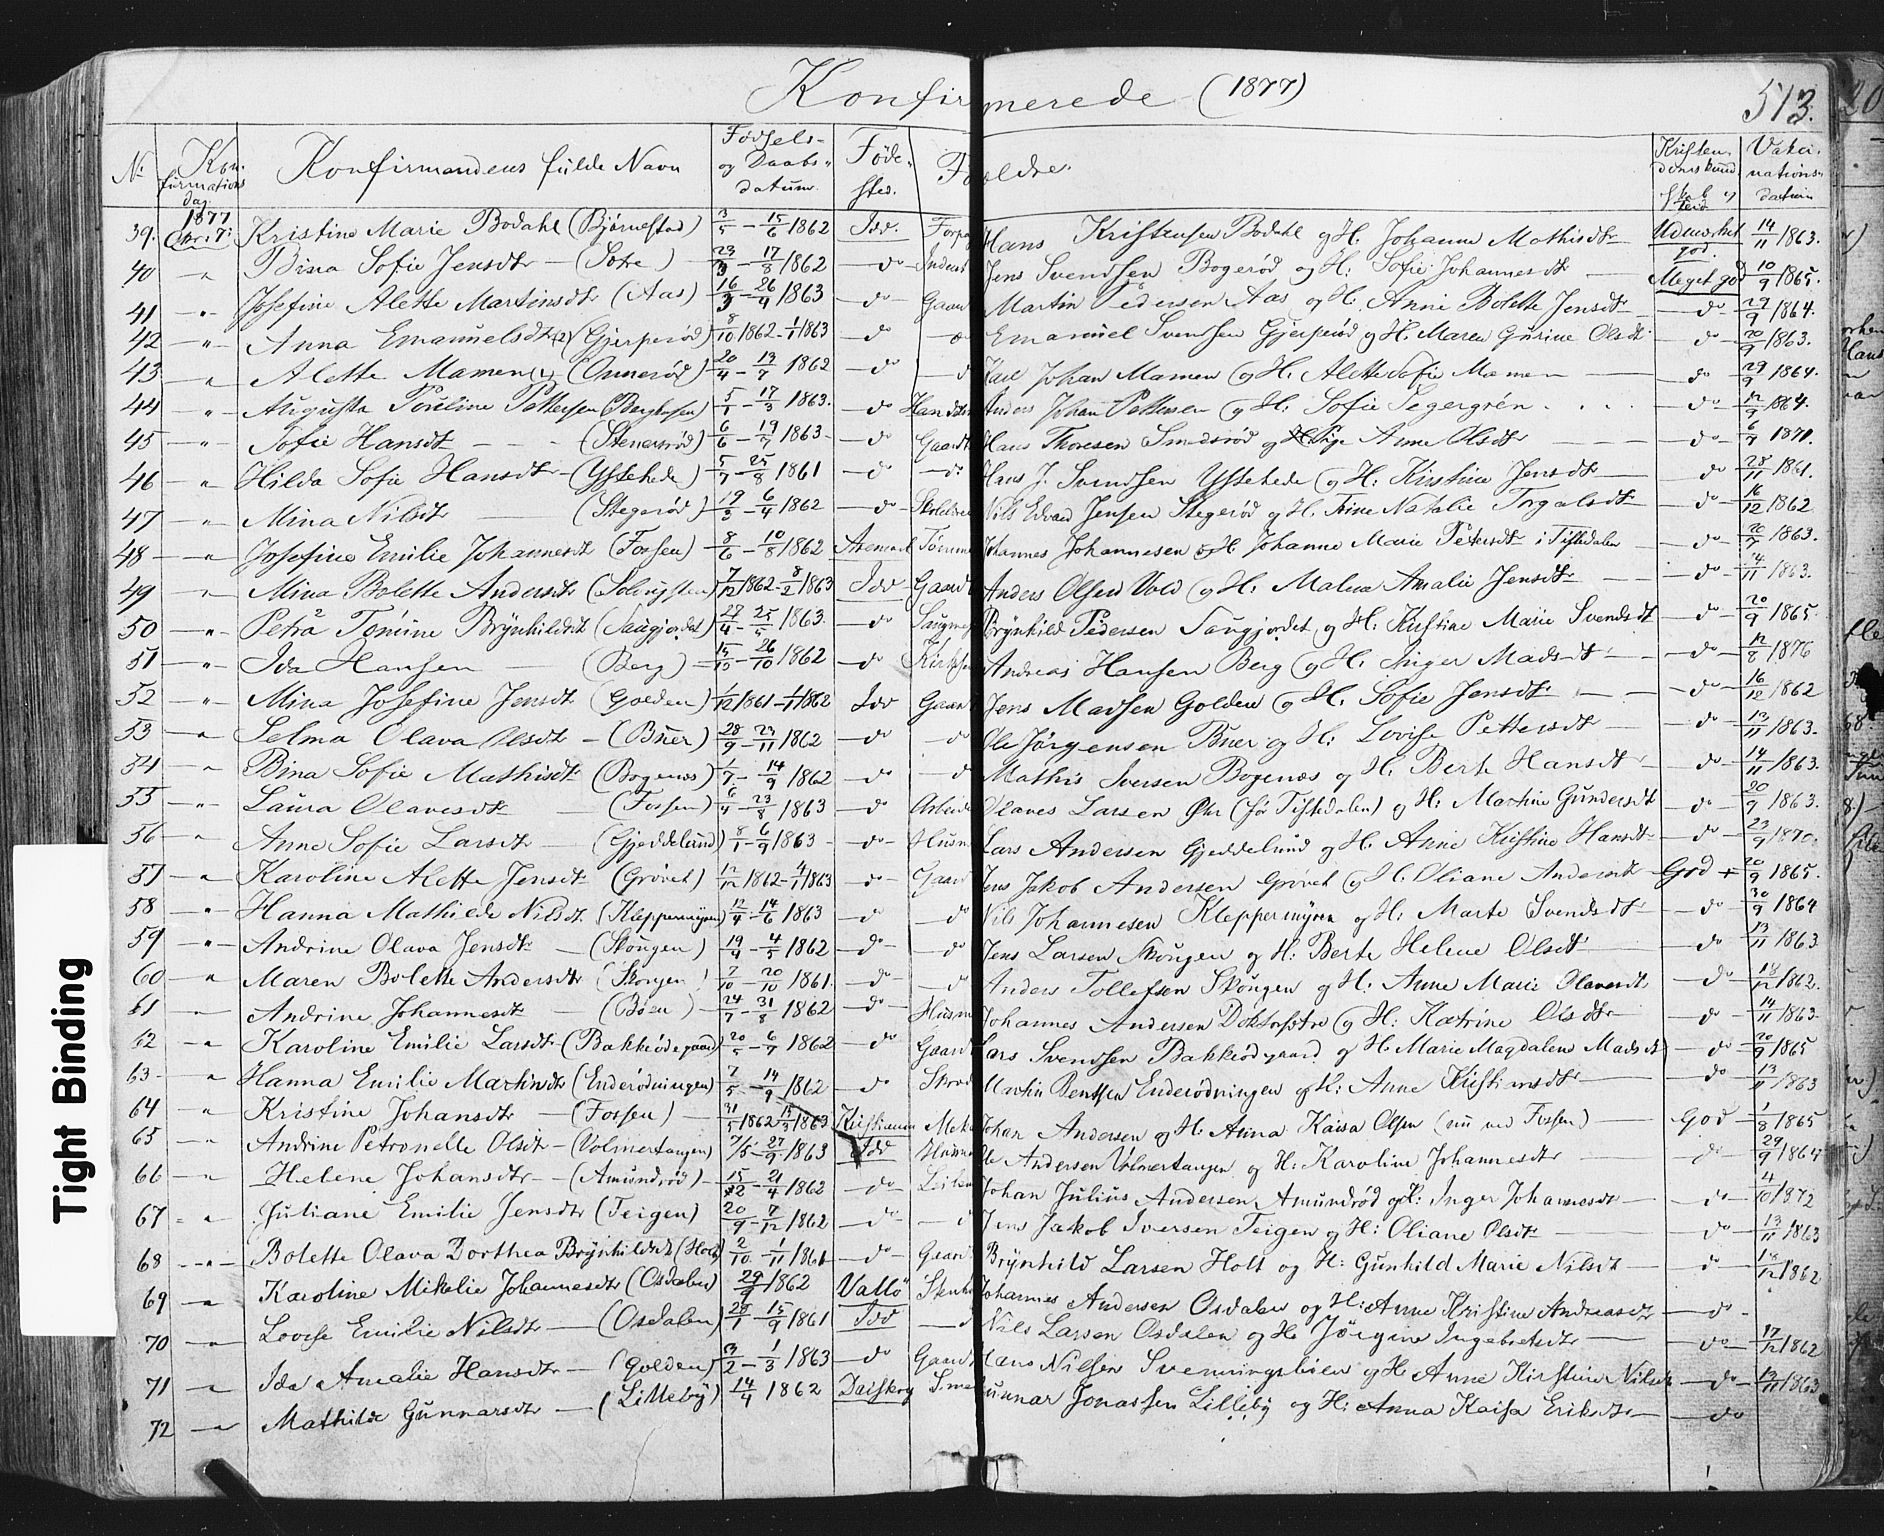 Konfirmerede (1877) 513.
Nr. Konfirmationsdag Konfirmandens fulde Navn Fødsels- og Daabsdatum Fødested Forældre. Kristendomskundskab Vaksinationsdatum
39. 1877 Kristine Marie Bodahl (Bjørnestad) 3/5 - 15/6 1862 Idd. Hans Kristensen Bodahl og H. Johanne Mathisdtr Udmærket god. 14/11 1863.
40 " Bina Sofie Jensdtr - (Sore) 23/3 - 17/8 1862 do Jens Svendsen Bogerød og H: Sofie Johannesdtr Meget god 10/9 1865.
41 " Josefine Alette Martinsdtr (Aas) 16/3 - 26/4 1863 do Gaard Martin Pedersen Aas og H. Anne Bolette Jensdtr do 29/9 1864.
42 " Anna Emanuelsdtr (2) (Gjerperød) 8/10 1862 - 1/1 1863 do Emanuel Svensen Gjerperød og H. Maren Gurine Olsdtr do 20/9 1863.
43 " Alette Mamen (Onnerød) 20/4 - 13/7 1862 do Karl Johan Mamen og H. Alette Sofie Mamen do 29/9 1864.
44 " Augusta Pouline Pettersen (Berghusen) 5/1 - 17/3 1863. do Anders Johan Pettersen og H. Sofie Segergrén do 12/9 1864.
45 " Sofie Hansdtr (Stenersrød) 6/6 - 19/7 1863 do Gaard Hans Thoresen Smedsrød og Pige Anne Olsdtr do 6/7 1871.
46 " Hilda Sofie Hansdtr (Ystehede) 5/7 - 25/8 1861 do do Hans J. Svendsen Ystehede og H: Kirstine Jensdtr do 28/11 1861.
47 " Mina Nilsdtr (Stegerød) 19/3 - 6/4 1862 do Nils Edvard Jensen Stegerød og H. Trine Natalie Torgalsdtr do 16/12 1862
48 " Josefine Emilie Johannesdt (Fossen) 8/6 - 10/8 1862 Aremark Johannes Johannesen og H. Johanne Marie Petersdt i Tistedalen do 20/7 1863.
49 " Mina Bolette Andersdtr 7/12 1862 - 8/2 1863 Idd Gaard Anders Olsen Vold og H. Malena Amalie Jensdtr do 4/11 1863.
50 " Petra Tomine Brynhildsdt (Saugjordet) 27/4 - 25/5 1863. do Brynhild Pedersen Saugjordet og H: Kristine Marie Svendsdt do 20/9 1865.
51 " Ida Hansen (Berg) 15/10 - 26/10 1862 do Andreas Hansen Berg og H. Inger Madsdt do 12/8 1876
52 " Mina Josefine Jensdt (Golden) 1/12 1861 - 1/1 1862 Idd Gaard Jens Madsen Golden og H. Sofie Jensdtr do 16/12 1862
53 " Selma Olava Olsdt (Buer) 28/9 - 23/11 1862 do do Ole Jørgensen Buer og H. Lovise Pettersdt do 13/11 1863.
54 " Bina Sofie Mathisdt (Bogenæs) 1/7 - 14/9 1862 do do Mathis Iversen Bogenæs og H. Berte Hansdt do 14/11 1863.
55 " Laura Olavesdt (Fossen) 6/4 - 23/8 1863 do Arbeide Olaves Larsen (før Tistedalen) og H: Martine Gundersdt do 20/9 1863.
56 " Anne Sofie Larsdt (Gjeddelund) 8/1 - 6/9 1863 do Husm Lars Andersen Gjeddelund og H. Anne Kristine Hansdtr do 23/9 1870.
57 " Karoline Alette Jensdt (Grövet) 12/12 1862 - 4/1 1863 do Gaard Jens Jakob Andersen Grövet og H. Oliane Andersdt God + 20/9 1865.
58 " Hanna Mathilde Nilsdt (Kleppermyren) 12/4 - 14/6 1863 do do Nils Johannesen Kleppermyren og H: Marte Svendsdt do 30/9 1864
59 " Andrine Olava Jensdt (Skougen) 19/4 - 4/5 1862 do do Jens Larsen Skougen og H: Berte Helene Olsdt do 13/11 1863
60 " Maren Bolette Andersdtr (Skogen) 7/10 - 20/10 1861. do do Anders Tollefsen Skougen og H: Anne Marie Olavesdt do 18/12 1862.
61 " Andrine Johannesdt (Bøen) 24/7 - 31/8 1862 do Husm Johannes Andersen og H: Katrine Olsdtr do 14/11 1863
62 " Karoline Emilie Larsdt (Bakkerødegaard) 20/5 - 6/7 1862 do Gaard Lars Svendsen Bakkerødgaard og H. Marie Magdalene Madsdt do 20/9 1865
63 " Hanna Emilie Martinsdtr (Enderødningen) 7/5 - 14/9 1862 do Martin Bentsen Enderødningen og H: Anne Kristiansdtr do 13/11 1863
64 " Kristine Johansdtr (Fossen) 31/5 1862 - 13/3 1863 Kristiania Johan Andersen og H. Anna Kaisa Olsen (nu ved Fossen) God 1/8 1865
65 " Andrine Petronelle Olsdt (Volmertangen) 7/5 - 27/9 1863 Idd Ole Andersen Volmertangen og H: Karoline Johannesdtr do 29/9 1864
66 " Helene Johansdtr (Amundrød) 15/2 - 21/4 1862 do Johan Julius Andersen Amundrød og H: Inger Johannesdtr do 4/10 1872
67 " Juliane Emilie Jensdtr (Teigen) 20/9 - 7/12 1862 do Jens Jakob Iversen Teigen og H: Oliane Olsdt do 13/11 1863
68 " Bolette Olava Dorthea Brynhildsdt (Holt) 2/10 - 1/11 1861 do Gaard Brynhild Larsen Holt og H: Gunhild Marie Nilsdt do 18/12 1862
69 " Karoline Mikalie Johannesdtr (Osdalen) 29/9 1862 Vallö Johannes Andersen Osdalen og H: Anne Kristine Andreasdtr do
70 " Lovise Emilie Nilsdtr (Osdalen) 28/1 - 15/9 1861 Idd Nils Larsen Osdalen og H. Jörgine Ingebretsdtr do 17/12 1862
71 " Ida Amalie Hansdtr (Golden) 3/2 - 1/3 1863 do Gaard Hans Nilsen Svenningsbøen og H: Anne Kirstine Nilsdt do 13/11 1863
72 " Mathilde Gunnarsdtr (Lilleby) 14/4 1862 Dalskog Gunnar Jonassen Lilleby og H: Anna Kaisa Eriksdtr do
Tight Binding